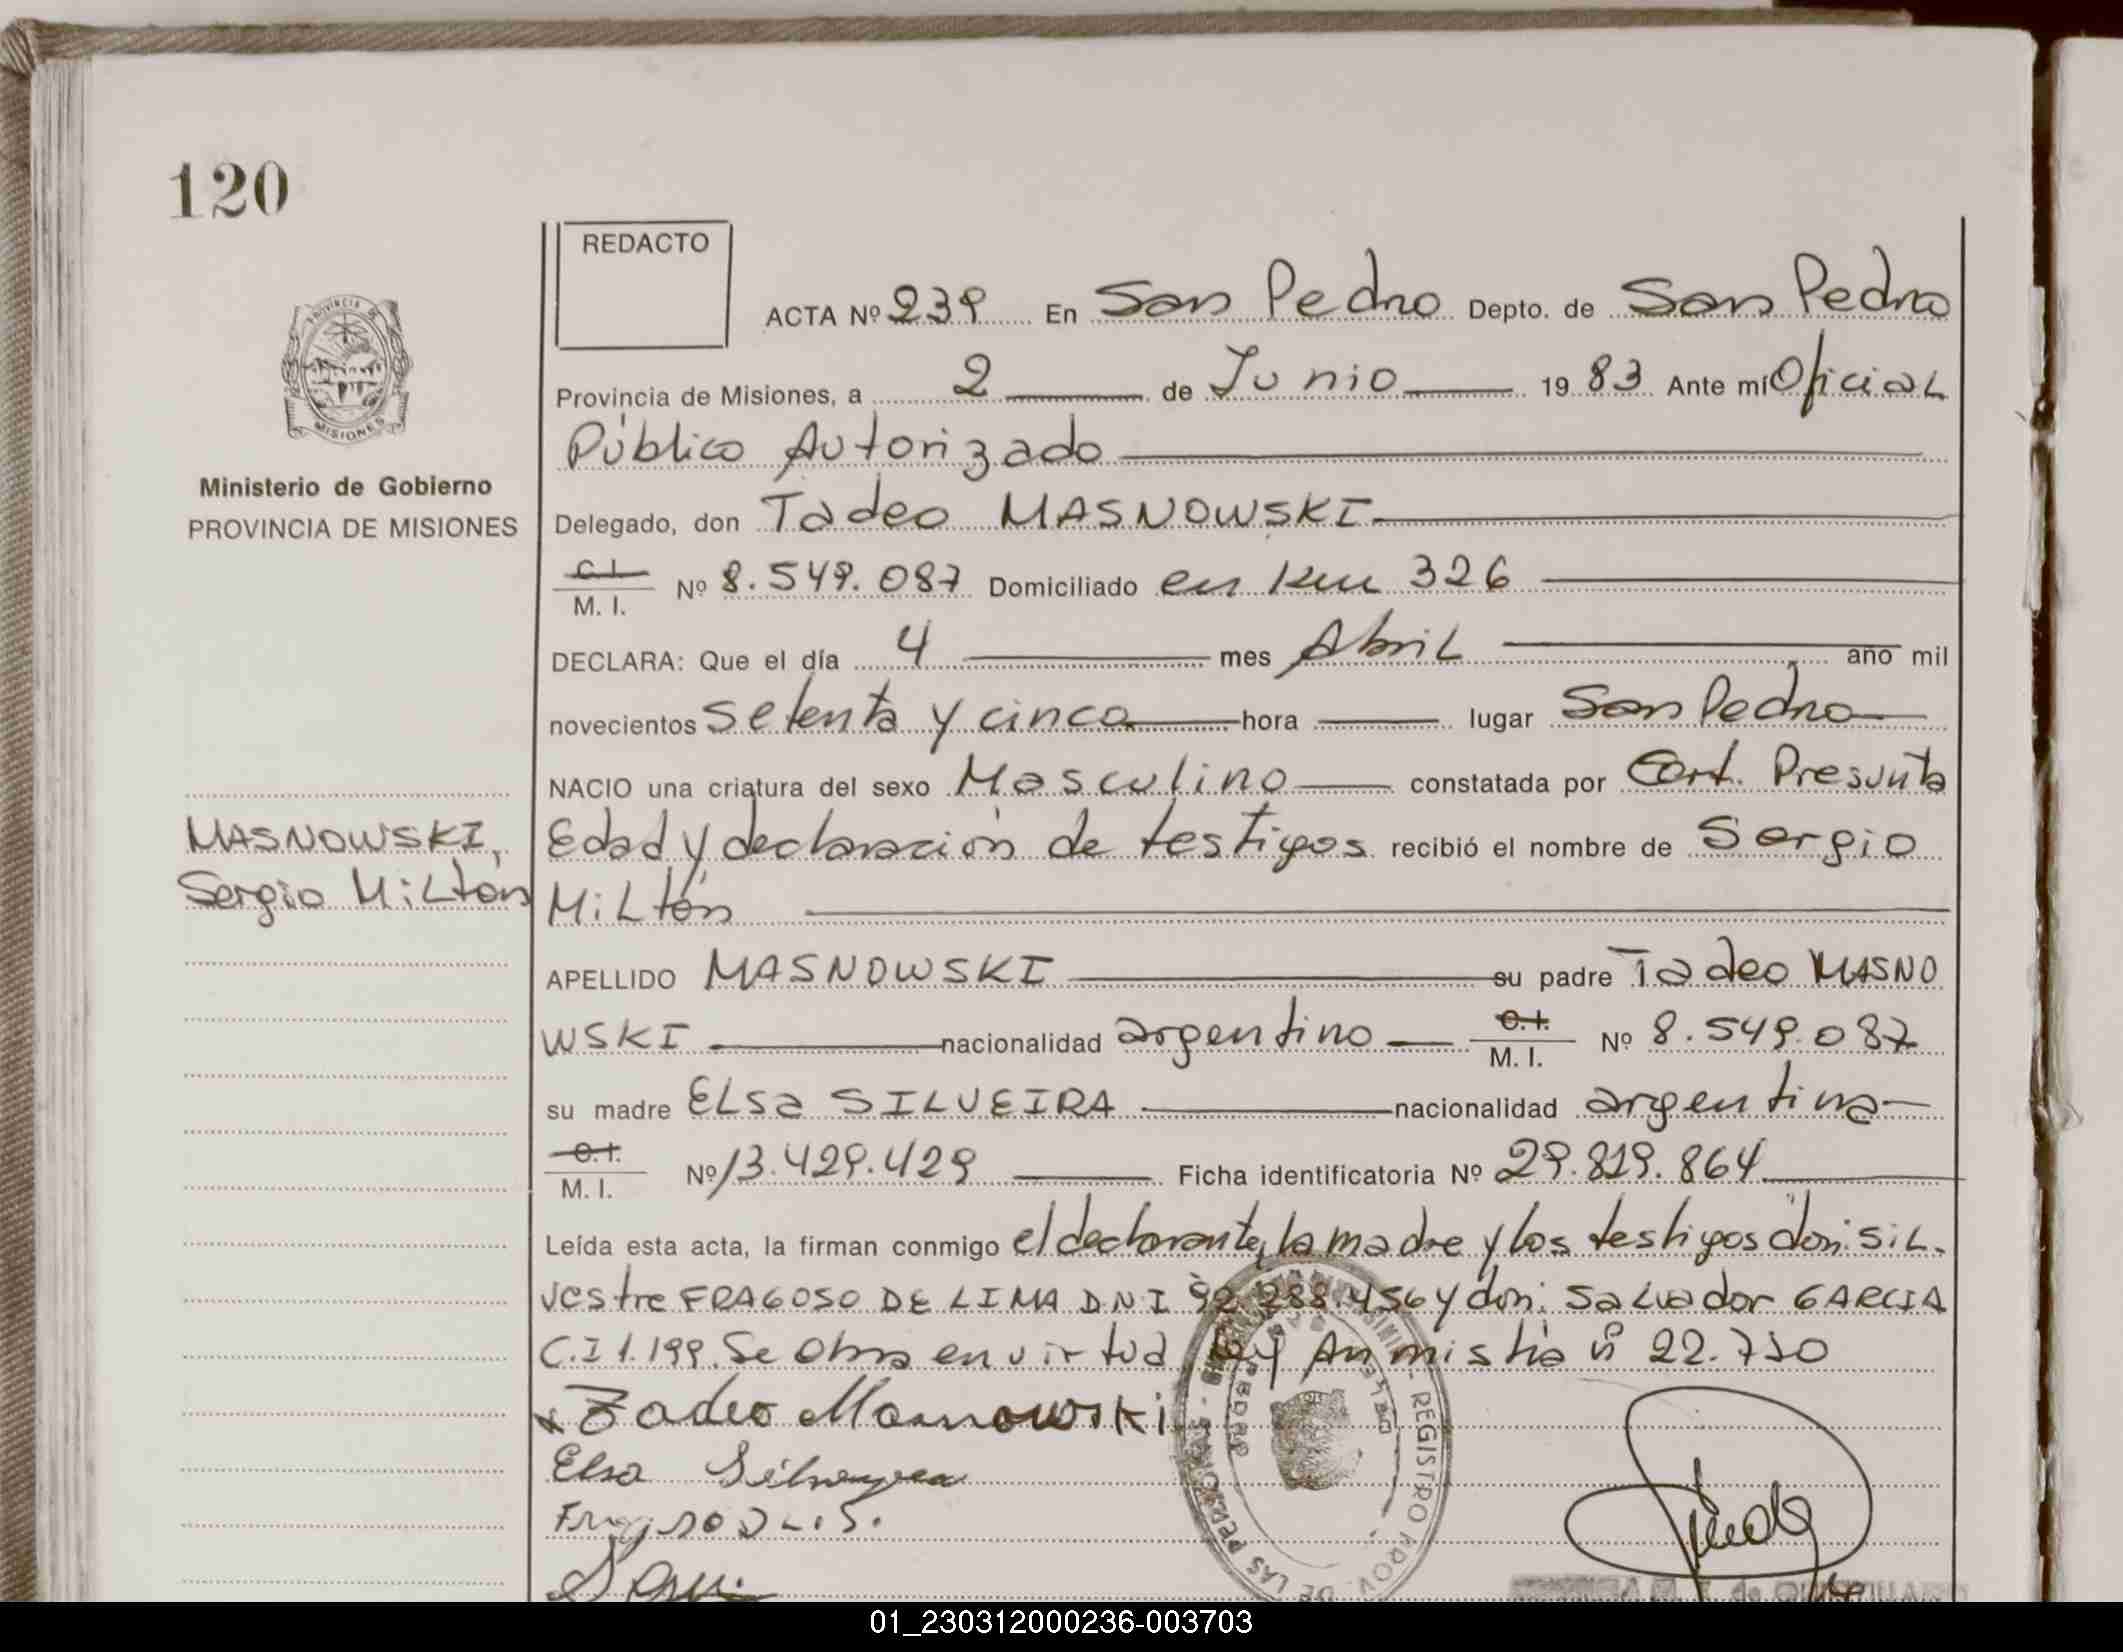 120
REDACTO
ACTA Nº 239 En San Pedro Depto. de San Pedro
Provincia de Misiones, a 2 de Junio 1983 Ante mí Oficial
Público Autorizado
Delegado, don Tadeo MASNOWSKI
C.I. M. I. Nº 8.549.087 Domiciliado en Km 326
DECLARA: Que el día 4 mes Abril año mil
novecientos Setenta y cinco hora lugar San Pedro
NACIO una criatura del sexo Masculino constatada por Cert. Presunta
Edad y declaración de testigos recibió el nombre de Sergio
Miltón
APELLIDO MASNOWSKI su padre Tadeo MASNO
WSKI nacionalidad argentino C.I. M. I. Nº 8.549.087
su madre ELSa SILVEIRA nacionalidad argentina
C.I. M. I. Nº 13.429.429 Ficha identificatoria Nº 29.819.864
Leída esta acta, la firman conmigo el declarante, la madre y los testigos don: SiL-
vestre FRAGOSO DE LIMA DNI 92.288.456 y don: Salvador GARCIA
C.I 1.199. Se obra en virtud Ley Anmistía nº 22.730
x Tadeo Masnowski
Elsa Silveyra
PROVINCIA DE MISIONES
Ministerio de Gobierno
PROVINCIA DE MISIONES
MASNOWSKI,
Sergio Miltón
REGISTRO PROV. DE LAS PERSONAS
01_230312000236-003703